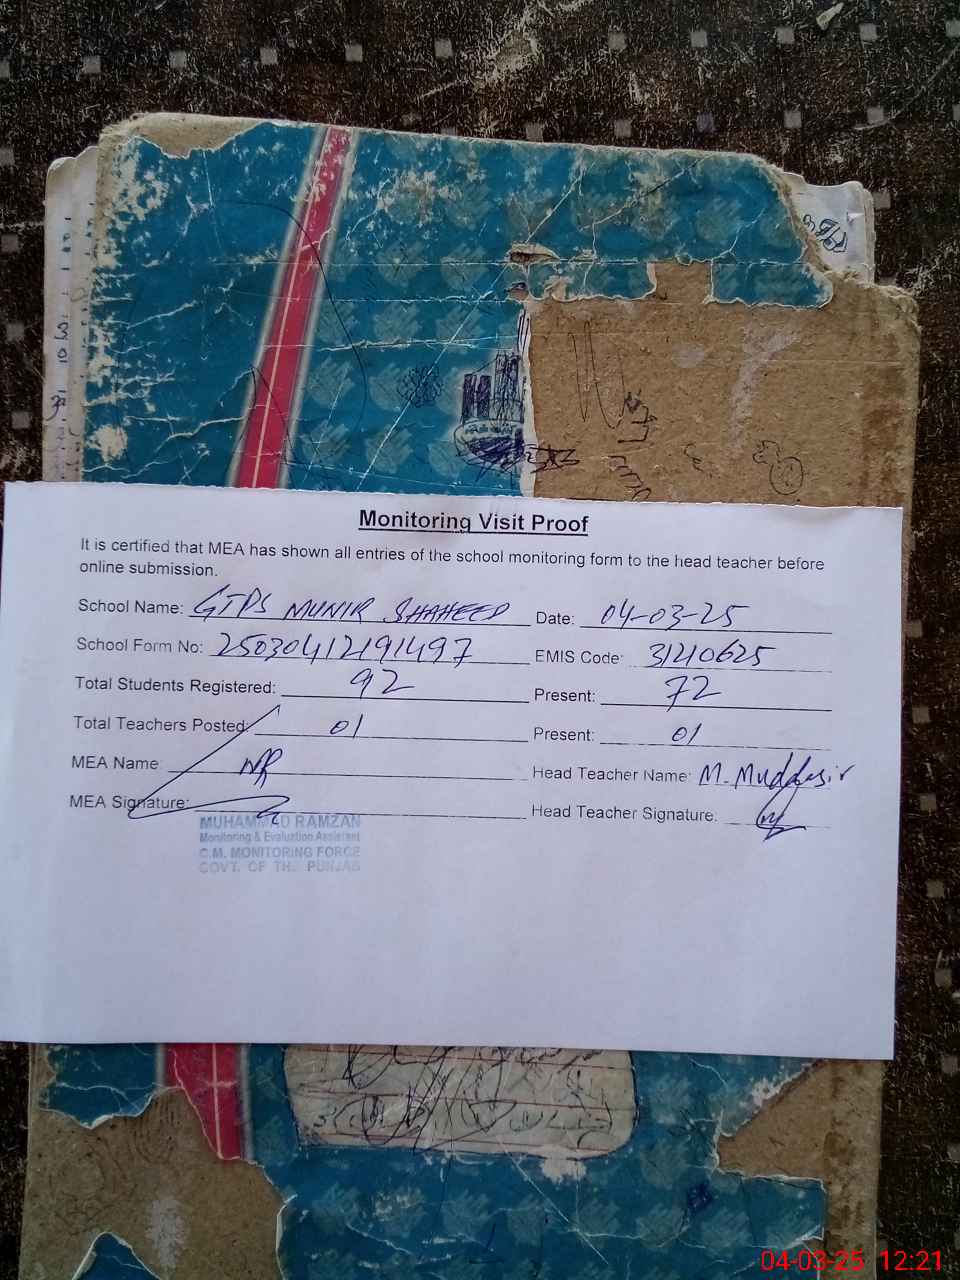 Monitoring Visit Proof
It is certified that MEA has shown all entries of the school monitoring form to the head teacher before
online submission.
School Name: GTPS MUNIR SHAHEED Date: 04-03-25
School Form No: 25030412191497 EMIS Code: 31210625
Total Students Registered: 92 Present: 72
Total Teachers Posted: 01 Present: 01
MEA Name: Head Teacher Name: M. Muddasir
MEA Signature: Head Teacher Signature:
MUHAMMAD RAMZAN
Monitoring & Evaluation Assistant
C.M. MONITORING FORCE
GOVT. OF THE PUNJAB
04-03-25 12:21